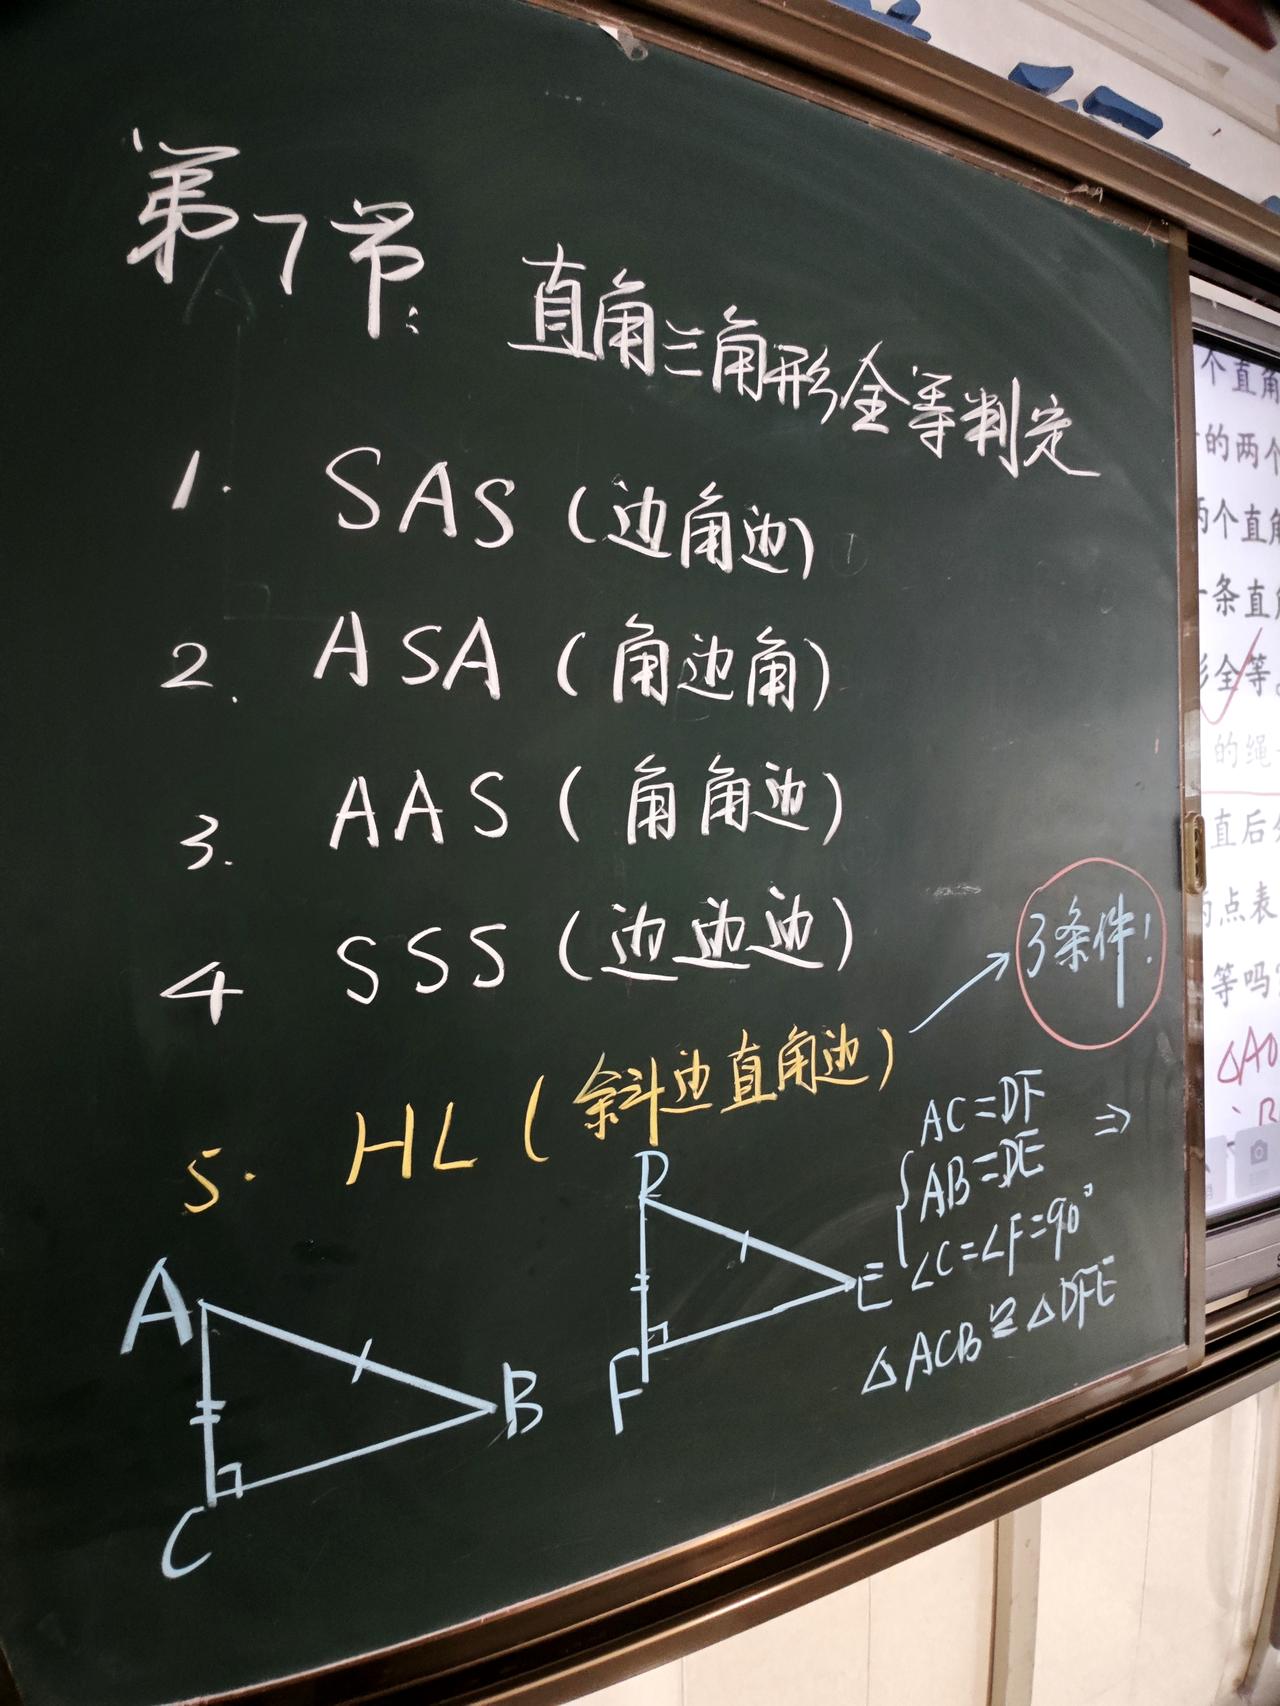 第7节: 直角三角形全等判定
1. SAS (边角边)
2. ASA (角边角)
3. AAS (角角边)
4 SSS (边边边)
5. HL (斜边直角边)
3条件!
AC=DF
AB=DE
∠C=∠F=90°
⇒
△ACB≌△DFE
A
B
C
D
E
F
个直角
的两个
两个直角
一条直角
形全等。
的绳
直后
两点表
等吗
△AO